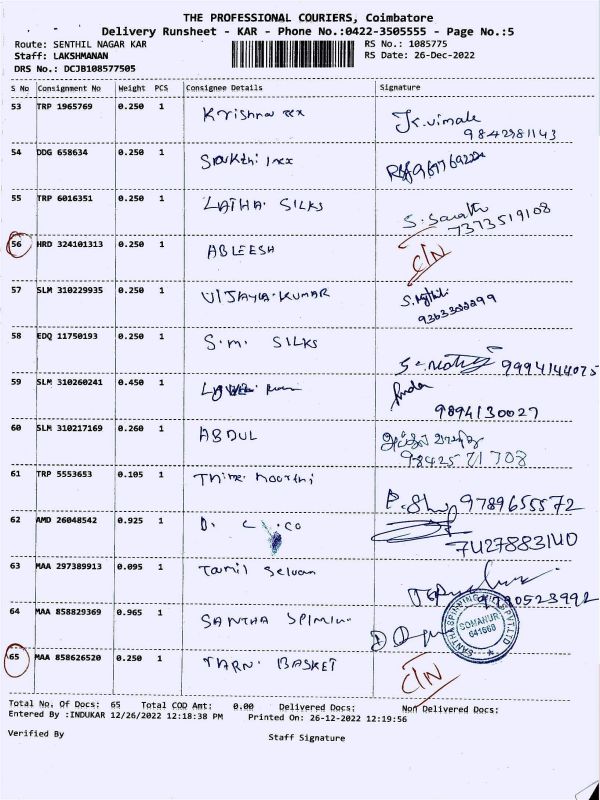 THE PROFESSIONAL COURIERS, Coimbatore
Delivery Runsheet - KAR - Phone No.:0422-3505555 - Page No.:5
Route: SENTHIL NAGAR KAR
RS No.: 1085775
Staff: LAKSHMANAN
RS Date: 26-Dec-2022
DRS No.: DCJB108577505
S No Consignment No Weight PCS Consignee Details Signature
53 TRP 1965769 0.250 1 Krishna xxx K.vimala
9842981143
54 DDG 658634 0.250 1 Sakthi
55 TRP 6016351 0.250 1 LATHA SILKS S. Sarathi
7373519108
56 HRD 324101313 0.250 1 ABLEESH C/N
57 SLM 310229935 0.250 1 VIJAYA KUMAR
58 EDQ 11750193 0.250 1 S.M. SILKS
9994144075
59 SLM 310260241 0.450 1
9894130027
60 SLM 310217169 0.260 1 ABDUL
98425 71708
61 TRP 5553653 0.105 1 Thiru Moorthi
9789655572
62 AMD 26048542 0.925 1
7427883140
63 MAA 297389913 0.095 1 Tamil Selvan
64 MAA 858829369 0.965 1 SANTHA SPINING
SANTHA SPINNING MILLS PVT.LTD
COMANUR
641668
65 MAA 858626520 0.250 1 YARN BASKET C/N
Total No. Of Docs: 65 Total COD Amt: 0.00 Delivered Docs: Non Delivered Docs:
Entered By :INDUKAR 12/26/2022 12:18:38 PM Printed On: 26-12-2022 12:19:56
Verified By
Staff Signature